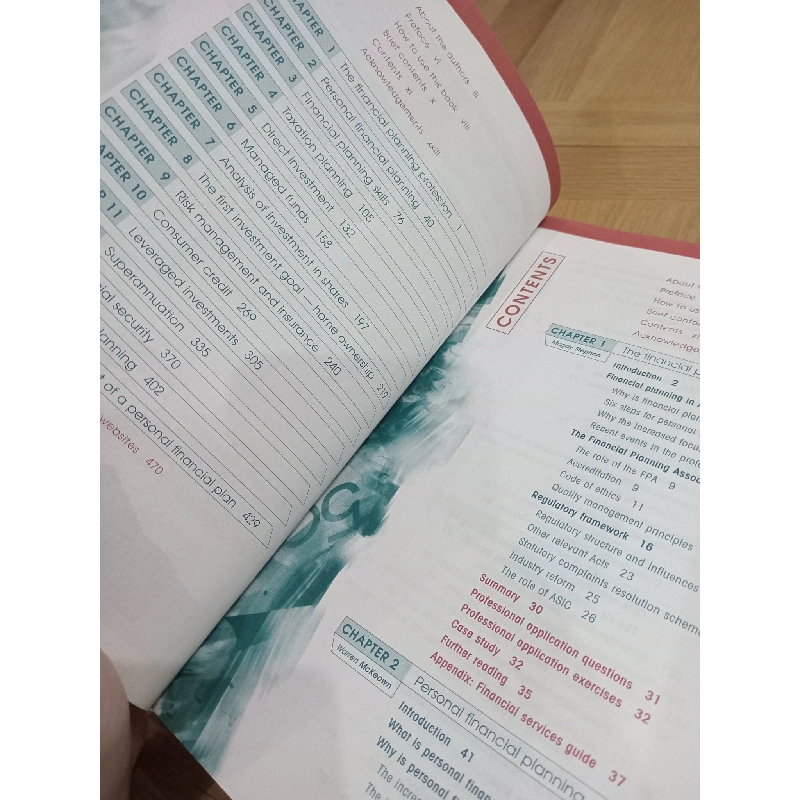 About the authors iii
Preface vi
How to use this book viii
Brief contents x
Contents xi
Acknowledgements xxiii
CHAPTER 1 The financial planning profession 1
CHAPTER 2 Personal financial planning 40
CHAPTER 3 Financial planning skills 76
CHAPTER 4 Taxation planning 105
CHAPTER 5 Direct investment 132
CHAPTER 6 Managed funds 158
CHAPTER 7 Analysis of investment in shares 197
CHAPTER 8 The first investment goal — home ownership 219
CHAPTER 9 Risk management and insurance 240
CHAPTER 10 Consumer credit 269
11 Leveraged investments 305
Superannuation 335
security 370
402
of a personal financial plan 429
websites 470
CONTENTS
About
Preface
How to use
Brief
Contents xi
CHAPTER 1 The financial
Megan
Introduction 2
Financial planning in
Why is financial
Six steps for personal
Why the increased
Recent events in the
The Financial Planning
The role of the FPA 9
Accreditation 9
Code of ethics 11
Quality management principles
Regulatory framework 16
Regulatory structure and influences
Other relevant Acts 23
Statutory complaints resolution
Industry reform 25
The role of ASIC 26
Summary 30
Professional application questions 31
Professional application exercises 32
Case study 32
Further reading 35
Appendix: Financial services guide 37
CHAPTER 2 Personal financial planning
Warren McKeown
Introduction 41
What is personal
Why is personal
The